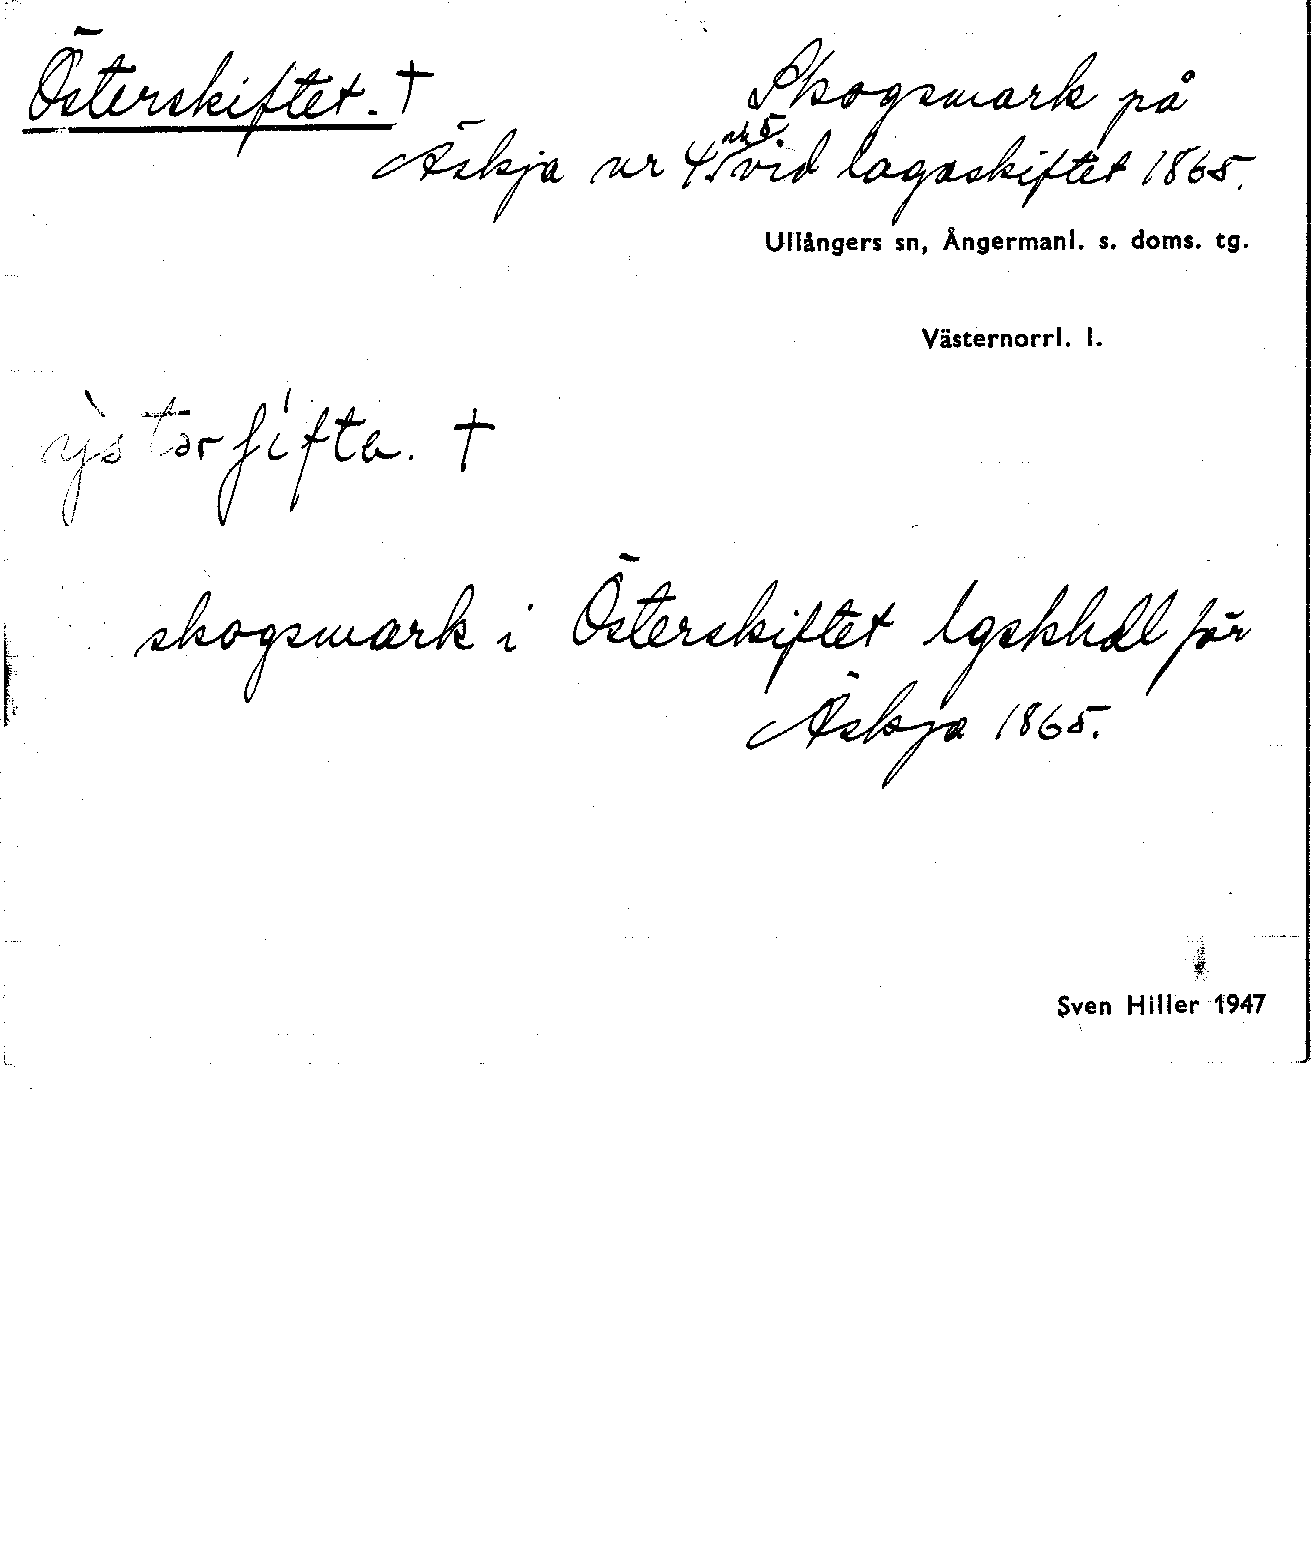 Österskiftet. †
Skogsmark på
Äskja nr 4 och 5. vid lagaskiftet 1865.
Ullångers sn, Ångermanl. s. doms. tg.
Västernorrl. l.
†
skogsmark i Österskiftet lgskhdl för
Äskja 1865.
Sven Hiller 1947